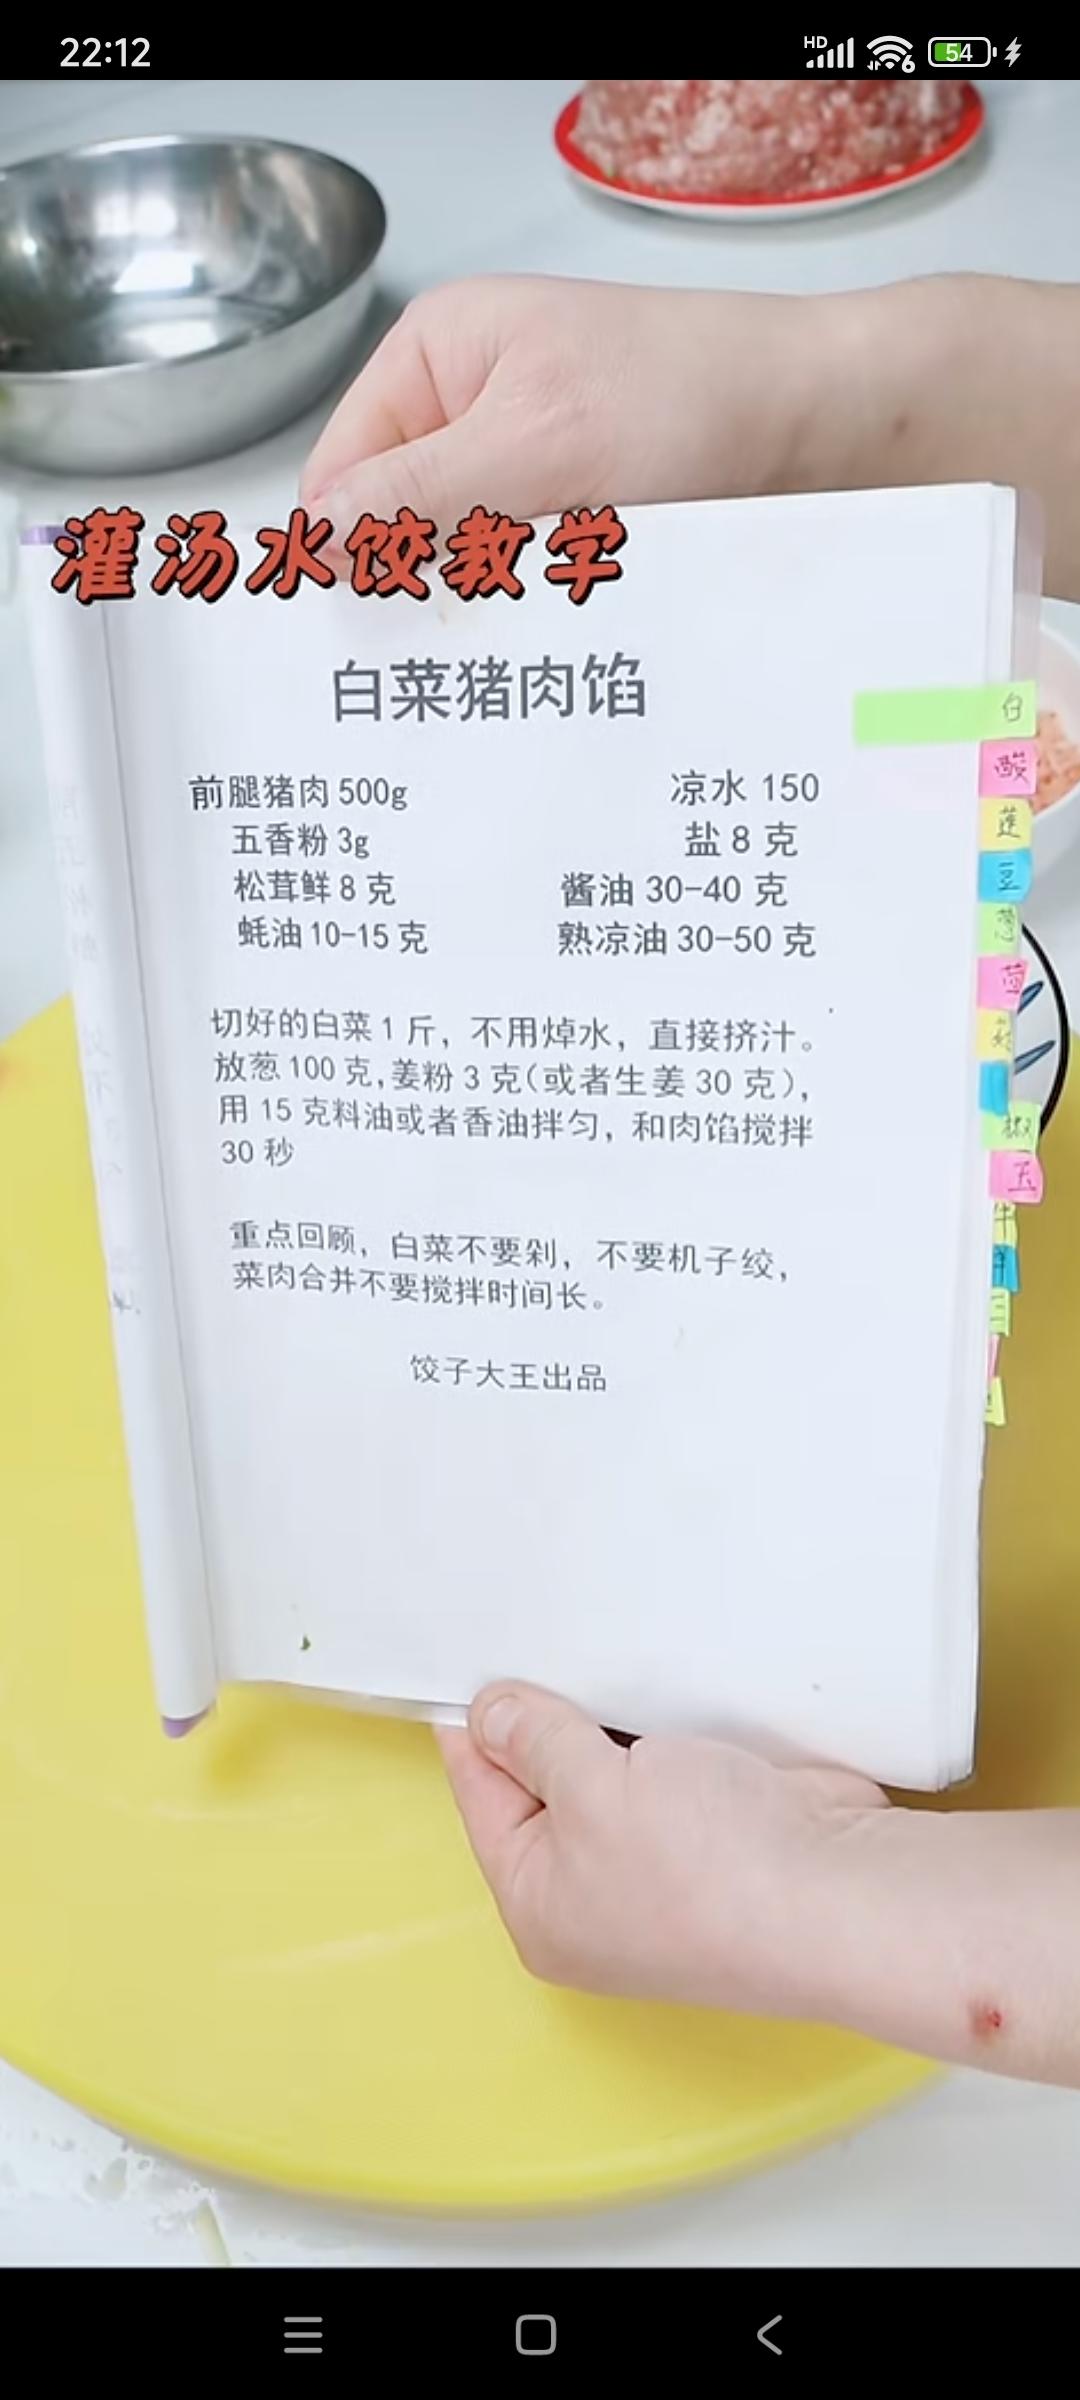 22:12
HD
6
54
灌汤水饺教学
白菜猪肉馅
前腿猪肉 500g 凉水 150
五香粉 3g 盐 8 克
松茸鲜 8 克 酱油 30-40 克
蚝油 10-15 克 熟凉油 30-50 克
切好的白菜 1 斤，不用焯水，直接挤汁。
放葱 100 克,姜粉 3 克(或者生姜 30 克)，
用 15 克料油或者香油拌匀，和肉馅搅拌
30 秒
重点回顾，白菜不要剁，不要机子绞，
菜肉合并不要搅拌时间长。
饺子大王出品
白
酸
莲
豆
葱
茴
椒
玉
牛